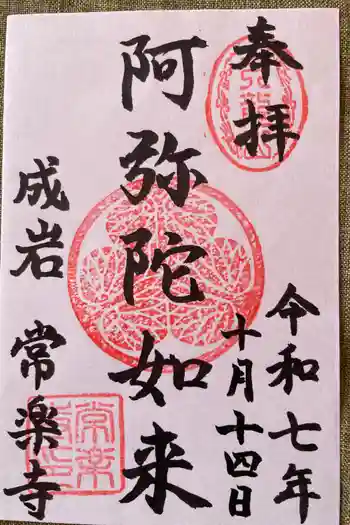 奉拝
令和七年
十月十四日
阿弥陀如来
成岩
常楽寺